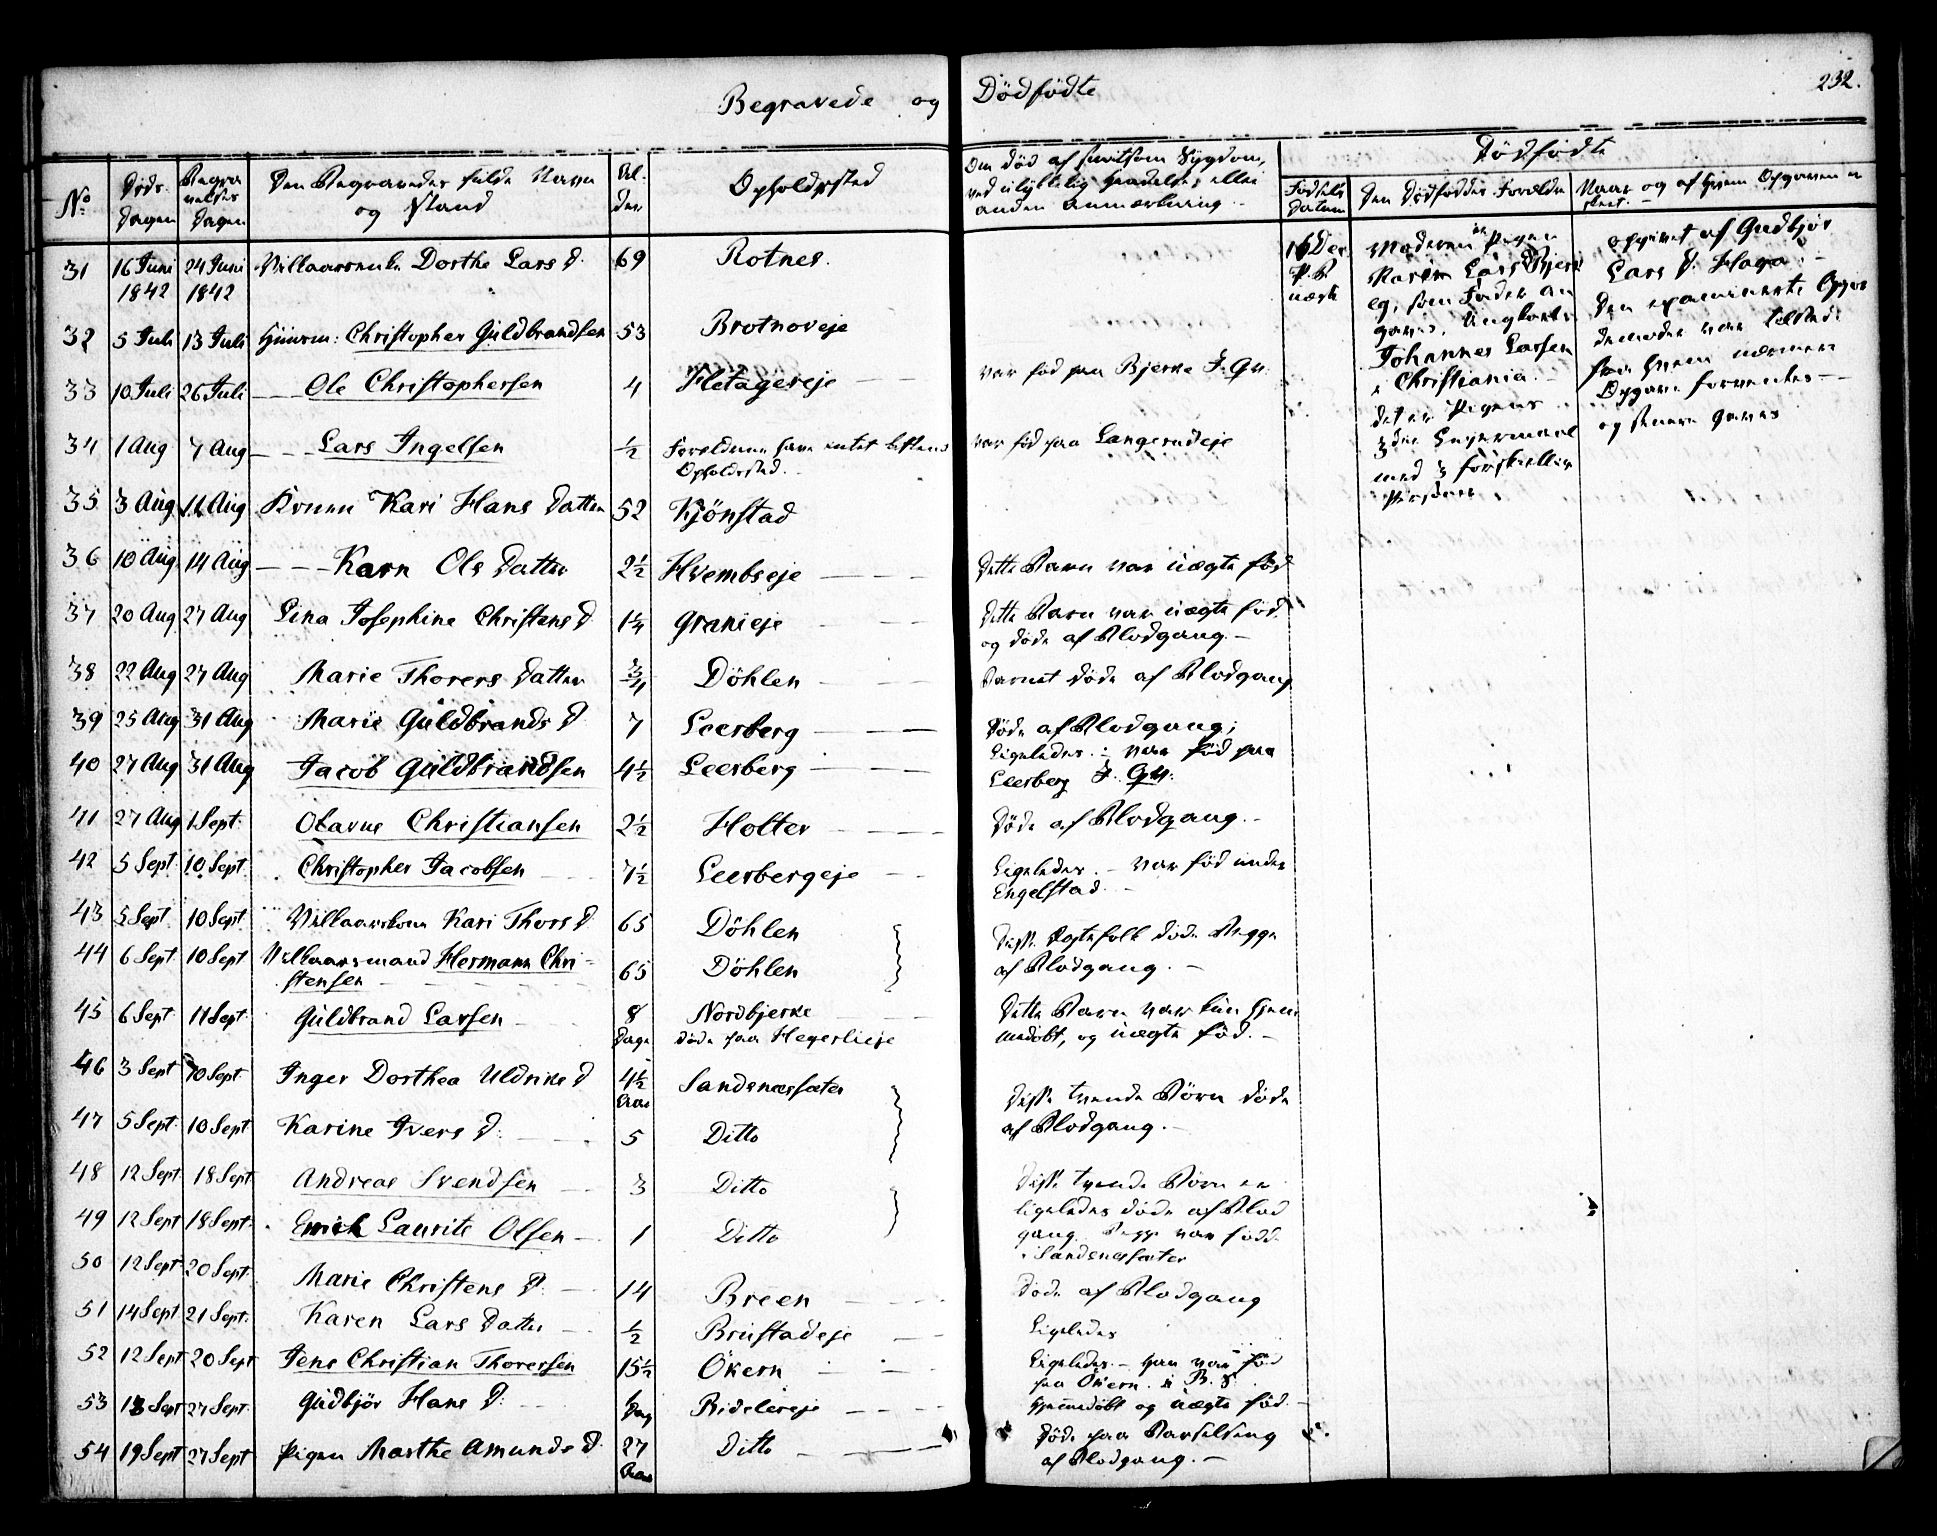 Begravede og Dödfödte
232.
No
Döds-
Dagen
Begra
velses
Dagen
Den Begravedes fulde Navn
og Stand
Al-
der
Opholdssted
Om död af smitsom Sygdom,
ved ulykkelig Hændelse, eller
anden Anmærkning.
Dödfödte
Födsels
Datum
Den Dödföddes Forældre
Naar og af hvem Opgaven er
skeet.
31 16 Juni 24 Juni Dorthe Lars D. 69 Rotnes.
1842 1842
32 5 Juli 13 Juli Huusm: Christopher Guldbrandsen 53 Brotnoveje
33 10 Juli 26 Juli — Ole Christophersen 4 Fletagereje — — var föd paa Bjerke J. Gr.
34 1 Aug 7 Aug — Lars Ingelsen ½ Forældrene have intet bestemt var föd paa Langerudeje
Opholdssted.
35 3 Aug 11 Aug Konen Kari Hans Datter 52 Kjönstad
36 10 Aug 14 Aug — Karn Ols Datter 2½ Hvembseje — Dette Barn var uægte föd
37 20 Aug 27 Aug Lina Josephine Christens D 1¼ Granieje — Dette Barn var uægte föd
og döde af Blodgang. —
38 22 Aug 27 Aug Marie Thorers Datter ¾ Döhlen — Barnet döde af Blodgang
39 25 Aug 31 Aug Marie Guldbrands D 7 Leersberg — Döde af Blodgang;
40 27 Aug 31 Aug Jacob Guldbrandsen 4½ Leersberg — Ligeledes. var föd paa
Leersberg J. Gr.
41 27 Aug 1 Sept. Olavus Christiansen 2½ Holter — Döde af Blodgang. —
42 5 Sept 10 Sept. Christopher Jacobsen 7½ Leersbergeje — Ligeledes. — var föd under
Engelstad. —
43 5 Sept 10 Sept. Kari Thors D. 65 Döhlen
44 6 Sept 10 Sept Hermann Chri- 65 Döhlen Disse Ægtefolk döde Begge
stensen af Blodgang. —
45 6 Sept 11 Sept. Guldbrand Larsen 8 Nordbjerke — Dette Barn var kun hjem
Dage döde paa Hegerlieje medöbt, og uægte föd. —
46 3 Sept 10 Sept. Inger Dorthea Uldriks D 4½ Sandsnæssæter
Aar Disse tvende Börn döde
47 5 Sept 10 Sept Karine Ivers D. 5 Ditto af Blodgang. —
48 12 Sept 18 Sept Andreas Svendsen 3 Ditto Disse tvende Börn er
ligeledes döde af Blod
49 12 Sept 18 Sept. Laurits Olsen 1 Ditto gang. Begge var födt
i Sandsnæssæter
50 12 Sept 20 Sept. Marie Christens D. 14 Breen — Döde af Blodgang
51 14 Sept 21 Sept. Karen Lars Datter ½ Brustadeje — Ligeledes
52 12 Sept 20 Sept Jens Christian Thoresen 15½ Ökern — Ligeledes. — Han var föd
paa Ökern. i B. S.
53 13 Sept 27 Sept. Gudbjör Hans D. Dag — Hjemmedöbt og uægte föd. —
54 19 Sept 27 Sept Pigen Marthe Amunds D. 27 Ditto — Döde paa Barselseng
Aar af Blodgang. —
16 Dec.
næste
Moderen er Pigen
Karen Lars D Bjerk
eg, som Fader an
gaves. Ungkarl
Johannes Larsen
i Christiania. —
det er Pigens
3die Leiermaal
med 3 forskjellige
Personer.
opgivet af Gudbjör
Lars D. Haga. —
Den examinerte Gjor
demoder var tilstede
fra hvem nærmere
Opgave forventes —
og senere gaves